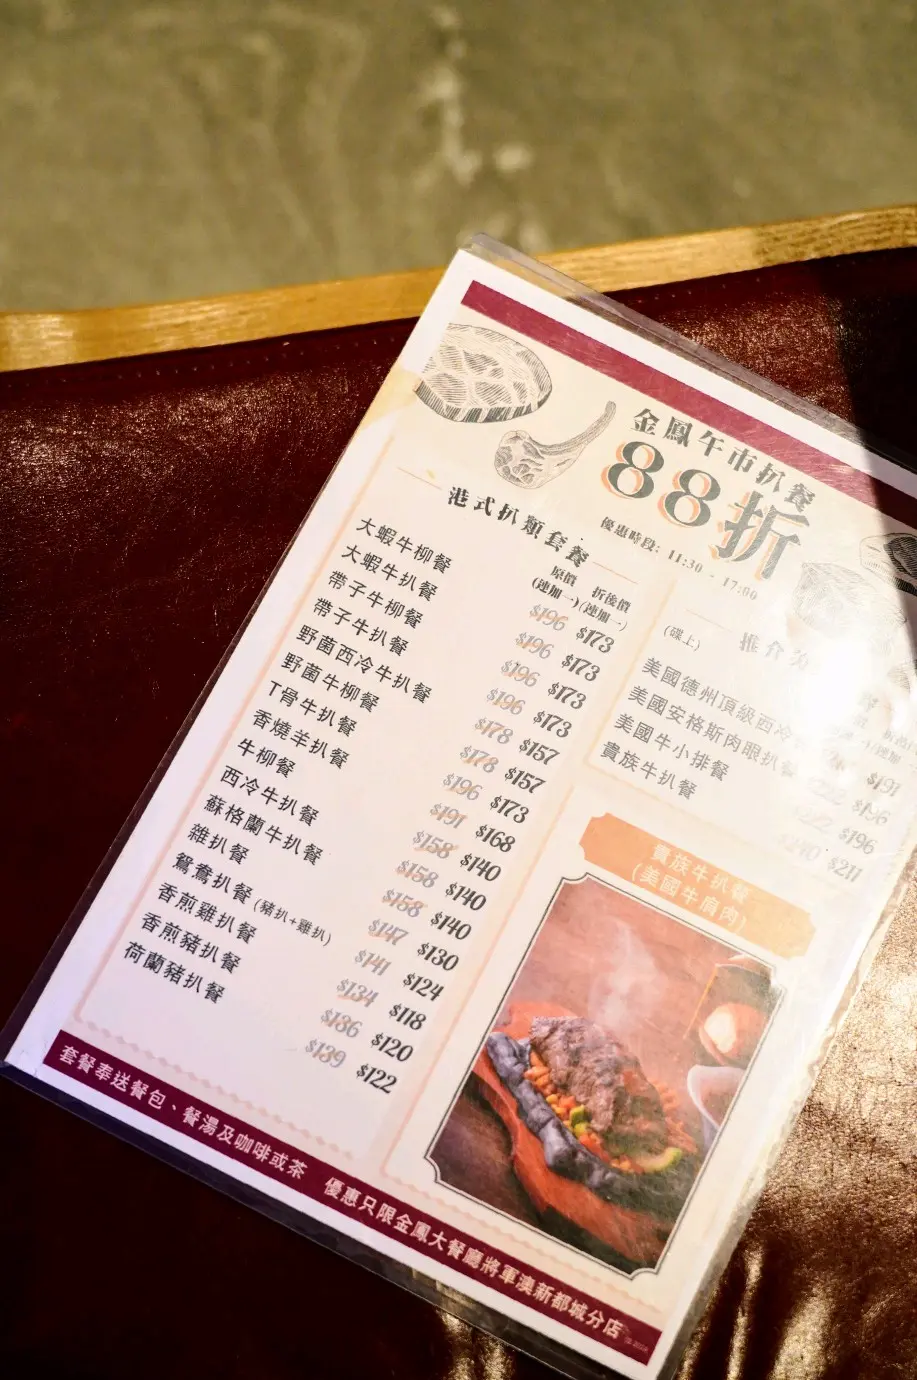 金鳳午市扒餐
88折
優惠時段: 11:30 - 17:00
港式扒類套餐
原價 折後價
(連加一) (連加一)
大蝦牛柳餐 $196 $173
大蝦牛扒餐 $196 $173
帶子牛柳餐 $196 $173
帶子牛扒餐 $196 $173
野菌西冷牛扒餐 $178 $157
野菌牛柳餐 $178 $157
T骨牛扒餐 $196 $173
香燒羊扒餐 $191 $168
牛柳餐 $158 $140
西冷牛扒餐 $158 $140
蘇格蘭牛扒餐 $158 $140
雜扒餐 $147 $130
鴛鴦扒餐 (豬扒+雞扒) $141 $124
香煎雞扒餐 $134 $118
香煎豬扒餐 $136 $120
荷蘭豬扒餐 $139 $122
(碟上) 推介
美國德州頂級西冷 $191
美國安格斯肉眼扒 $196
美國牛小排餐 $196
貴族牛扒餐 $240 $211
貴族牛扒餐
(美國牛肩肉)
套餐奉送餐包、餐湯及咖啡或茶 優惠只限金鳳大餐廳將軍澳新都城分店